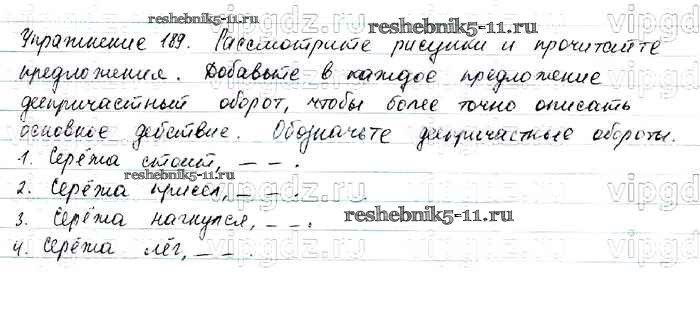 reshebnik5-11.ru
Упражнение 189. Рассмотрите рисунки и прочитайте
предложения. Добавьте в каждое предложение
деепричастный оборот, чтобы более точно описать
основное действие. Обозначьте деепричастные обороты.
1. Серёжа стоит, _ _ .
reshebnik5-11.ru
2. Серёжа присел, _ _ .
3. Серёжа нагнулся, _ _ .
reshebnik5-11.ru
4. Серёжа лёг, _ _ .
vipgdz.ru
vipgdz.ru
vipgdz.ru